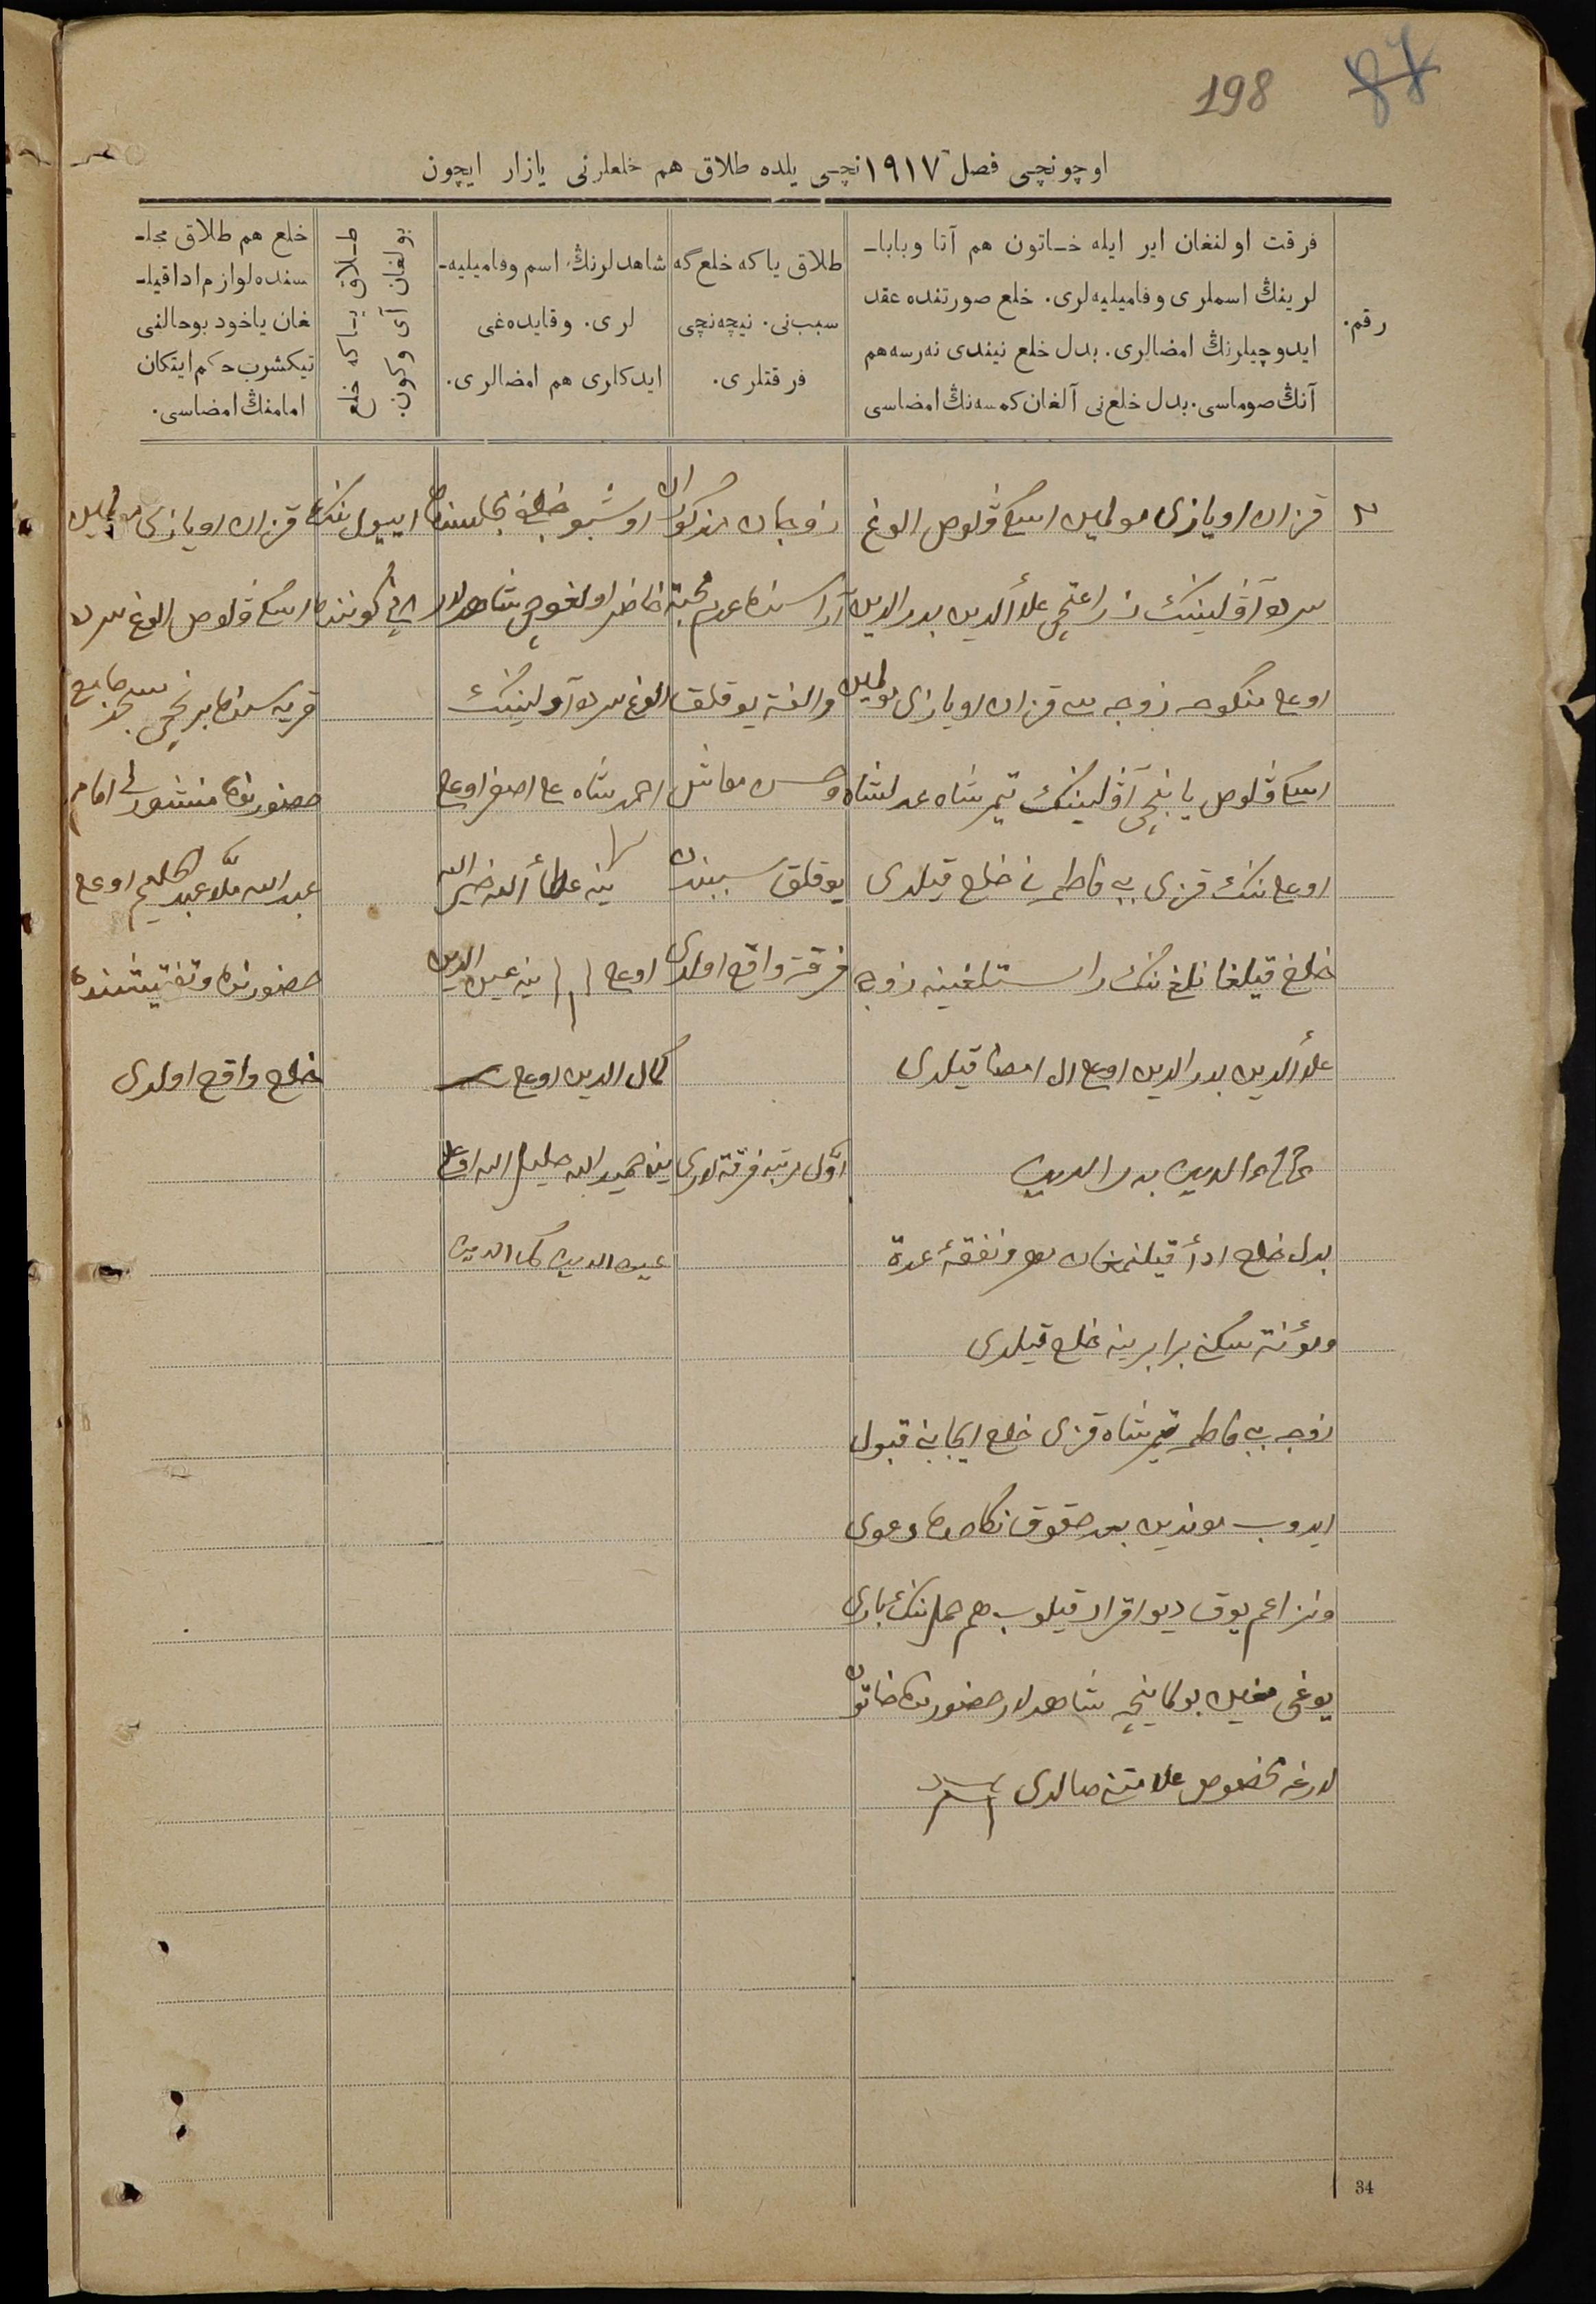 198
87
اوچونچی فصل ١٩١٧نچی یلده طلاق هم خلعلرنی یازار ایچون
رقم.
فرقت اولنغان ایر ایله خـاتون هم آتا وبابا-
لرینڭ اسملری وفامیلیه‌لری. خلع صورتنده عقد
ایدوچیلرنڭ امضالری. بدل خلع نیندی نه‌رسه هم
آنڭ صوماسی. بدل خلع‌نی آلغان کمسه‌نڭ امضاسی
طلاق یاکه خلع‌گه
سبب‌نی. نیچه‌نچی
فرقتلری.
شاهدلرنڭ اسم وفامیلیه-
لری. وقایده‌غی
ایدکلری هم امضالری.
طـلاق یـاکه خلع
بولغان آی وکون.
خلع هم طلاق مجلـ-
سنده لوازم اداقیلـ-
غان یاخود بوحالنی
تیکشرب حکم ایتکان
امامنڭ امضاسی.
٣
قزان اویازی اسکی ڤلوص الوغ
آڤلیننک زراعتچی علأالدین بدرالدین
اوغلی منکوحه زوجه سی قزان اویازی
اسکی ڤلوص یانچی آڤلینک تیمرشاه عدلشاه
اوغلی ننک قزی بی بی فاطمه نی خلع قیلدی
خلع قیلغانلغ ننک راستلغینه زوج
علأالدین بدرالدین اوغلی قیلدی
علاءالدین بدرالدین
بدل خلع ادأ قیلنمغان مهر ونفقۀ عدة
ومؤنة سکنی برابرینه خلع قیلدی
زوجه بی بی فاطمه تیمرشاه قزی خلع ایجابنی قبول
ایدوب موندین بعد حقوق نکاحده دعوی
ونزاعم یوق دیو اقرار قیلوب هم حملننک باری
یوغی معین بولماینچه شاهدلار حضورنده خاتون
لارغه مخصوص علامتنی صالدی
زوجان مذکوران
آراسنده عدم محبة
والفة یوقلق
وحسن معاش
یوقلق سببندن
فرقة واقع اولدی
اوّل مرتبه فرقة لری
اوشبو خلع مجلسنده
حاضر اولغوچی شاهدلار
الوغ آڤلینک
احمدشاه علی اصغر اوغلی
ینه عطأالله خیرالله
اوغلی ینه عین الدین
کمال الدین اوغلی
ینه حمیدالله حلیم الله اوغلی
عین الدین کمال الدین
اییول ننک
کوننده
قزان اویازی
اسکی ڤلوص الوغ
قریه سنده برنچی مسجد جامع
حضورنده منشورلی امام
عبدالله ملّا عبدالحکیم اوغلی
حضورنده وتفتیشنده
خلع واقع اولدی
34